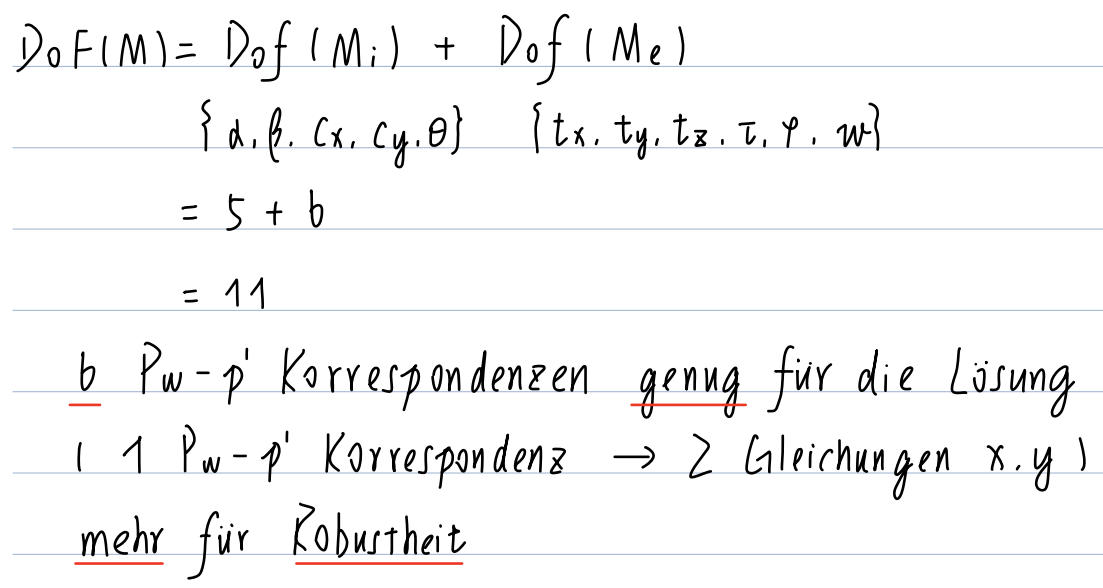 DoF(M) = Dof (Mi) + Dof (Me)
{α, β, Cx, Cy, θ} {tx, ty, tz, τ, φ, w}
= 5 + 6
= 11
6 Pw - p' Korrespondenzen genug für die Lösung
( 1 Pw - p' Korrespondenz → 2 Gleichungen x, y )
mehr für Robustheit